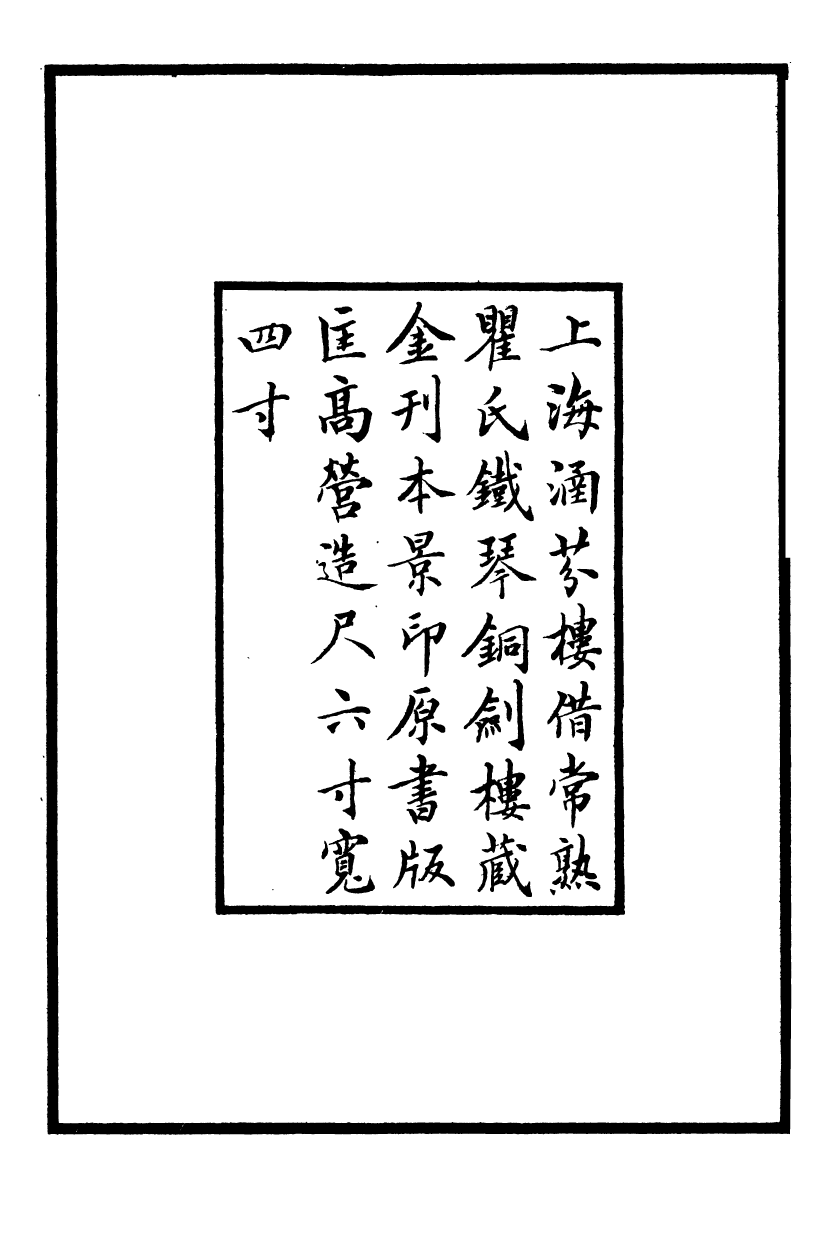 上海涵芬樓借常熟
瞿氏鐵琴銅劍樓藏
金刊本景印原書版
匡高營造尺六寸寬
四寸